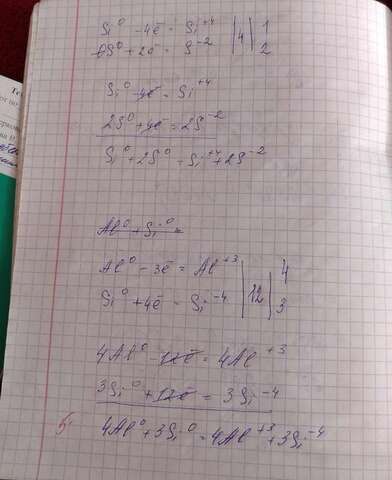 Si⁰ - 4ē = Si⁺⁴ | 4 | 1
S⁰ + 2ē = S⁻² | 2
Si⁰ - 4ē = Si⁺⁴
2S⁰ + 4ē = 2S⁻²
Si⁰ + 2S⁰ = Si⁺⁴ + 2S⁻²
Al⁰ + Si⁰ =
Al⁰ - 3ē = Al⁺³ | 12 | 4
Si⁰ + 4ē = Si⁻⁴ | 3
4Al⁰ - 12ē = 4Al⁺³
3Si⁰ + 12ē = 3Si⁻⁴
4Al⁰ + 3Si⁰ = 4Al⁺³ + 3Si⁻⁴